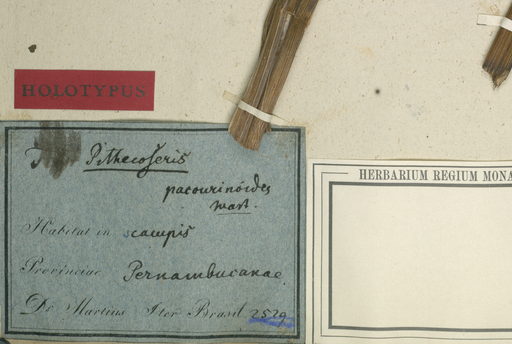 HOLOTYPUS
Pithecoseris
pacourinoides
Mart.
Habitat in campis
Provinciae Pernambucanae
Dr Martius Iter Brasil 2529
HERBARIUM REGIUM MONA